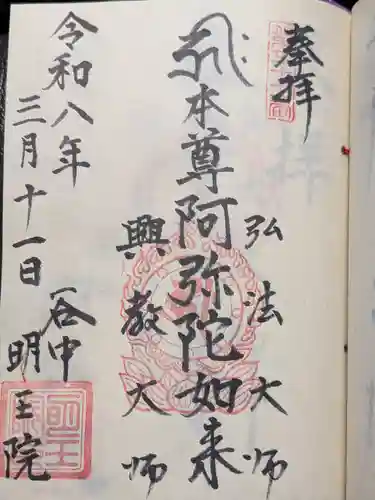 奉拝
弘法大師
本尊阿弥陀如来
興教大師
谷中
明王院
令和八年
三月十一日